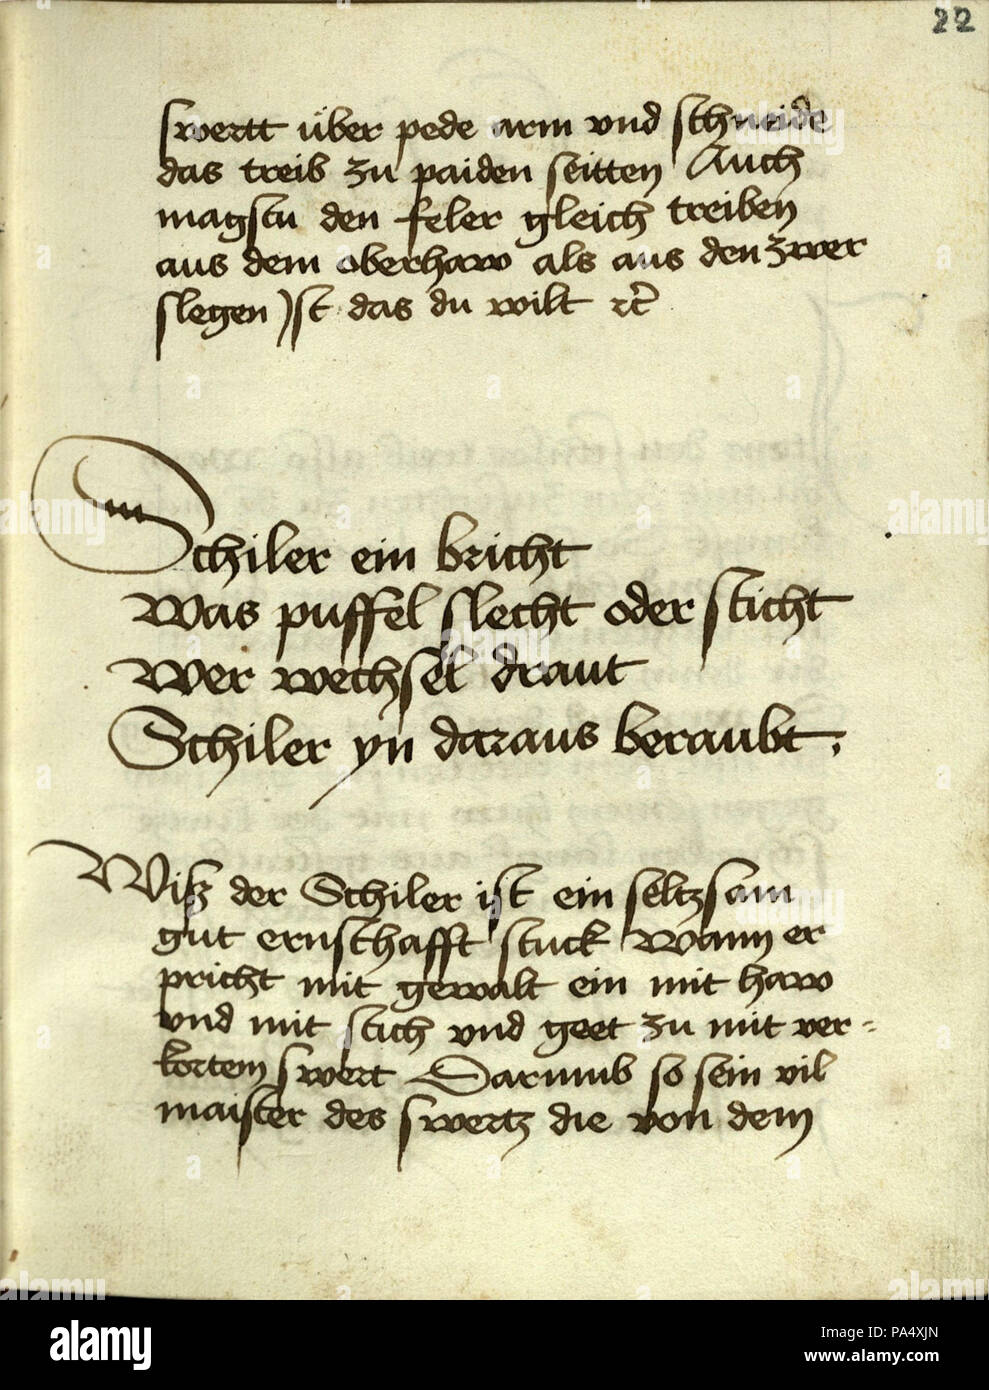 22
swertt über pede arm vnd schneide
das treib zu paiden seitten Auch
magstu den feler gleich treiben
aus dem oberhaw als aus den zwer
slegen Jst das du wilt ꝛc̃
Schiler ein bricht
Was puffel slecht oder sticht
Wer wechsel draut
Schiler yn daraus beraubt.
Wisz der Schiler ist ein seltzsam
gut ernsthafft stuck Wann er
pricht mit gewalt ein mit haw
vnd mit stich vnd geet zu mit ver=
kortem swert Darumb so sein vil
maister des swertz die von dem
alamy
Image ID: PA4XJN
www.alamy.com